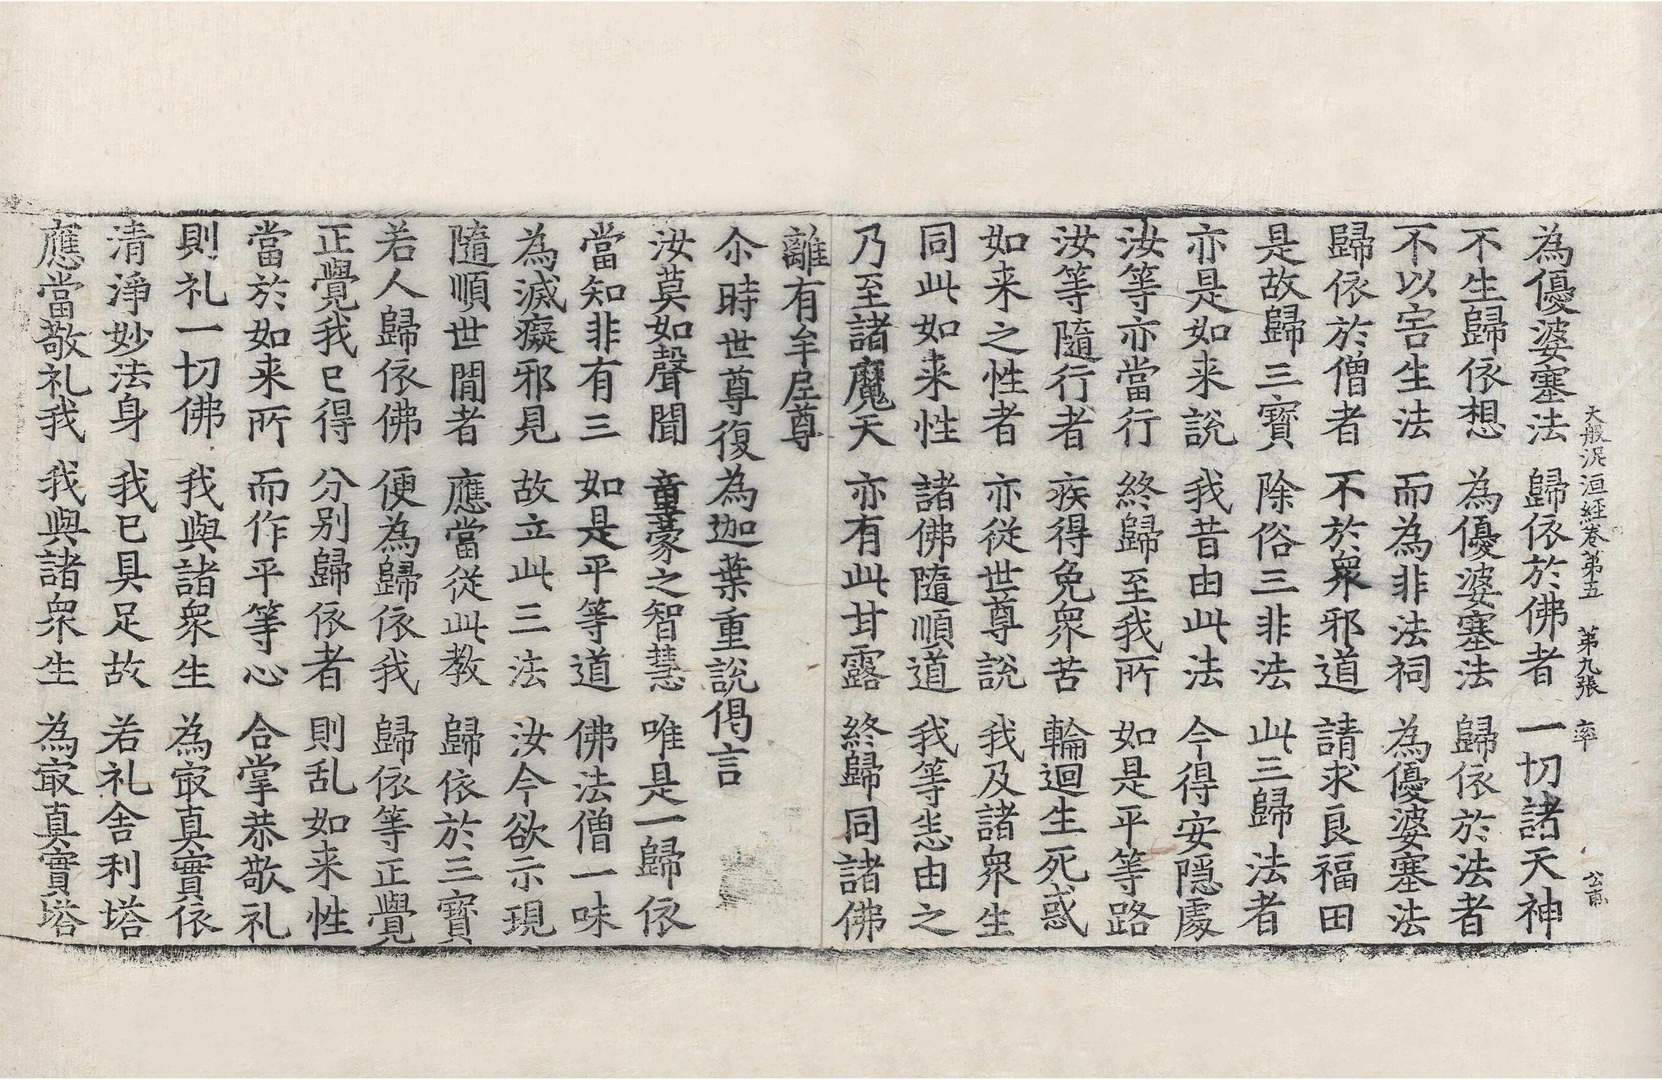 大般泥洹經卷第五　第九張　率　公甫
為優婆塞法　歸依於佛者　一切諸天神
不生歸依想　為優婆塞法　歸依於法者
不以害生法　而為非法祠　為優婆塞法
歸依於僧者　不於衆邪道　請求良福田
是故歸三寶　除俗三非法　此三歸法者
亦是如来說　我昔由此法　今得安隱處
汝等亦當行　終歸至我所　如是平等路
汝等隨行者　疾得免衆苦　輪迴生死惑
如来之性者　亦從世尊說　我及諸衆生
同此如来性　諸佛隨順道　我等悉由之
乃至諸魔天　亦有此甘露　終歸同諸佛
離有牟尼尊
尒時世尊復為迦葉重說偈言
汝莫如聲聞　童蒙之智慧　唯是一歸依
當知非有三　如是平等道　佛法僧一味
為滅癡邪見　故立此三法　汝今欲示現
隨順世閒者　應當從此教　歸依於三寶
若人歸依佛　便為歸依我　歸依等正覺
正覺我已得　分別歸依者　則乱如来性
當於如来所　而作平等心　合掌恭敬礼
則礼一切佛　我與諸衆生　為㝡真實依
清淨妙法身　我已具足故　若礼舍利塔
應當敬礼我　我與諸衆生　為㝡真實塔